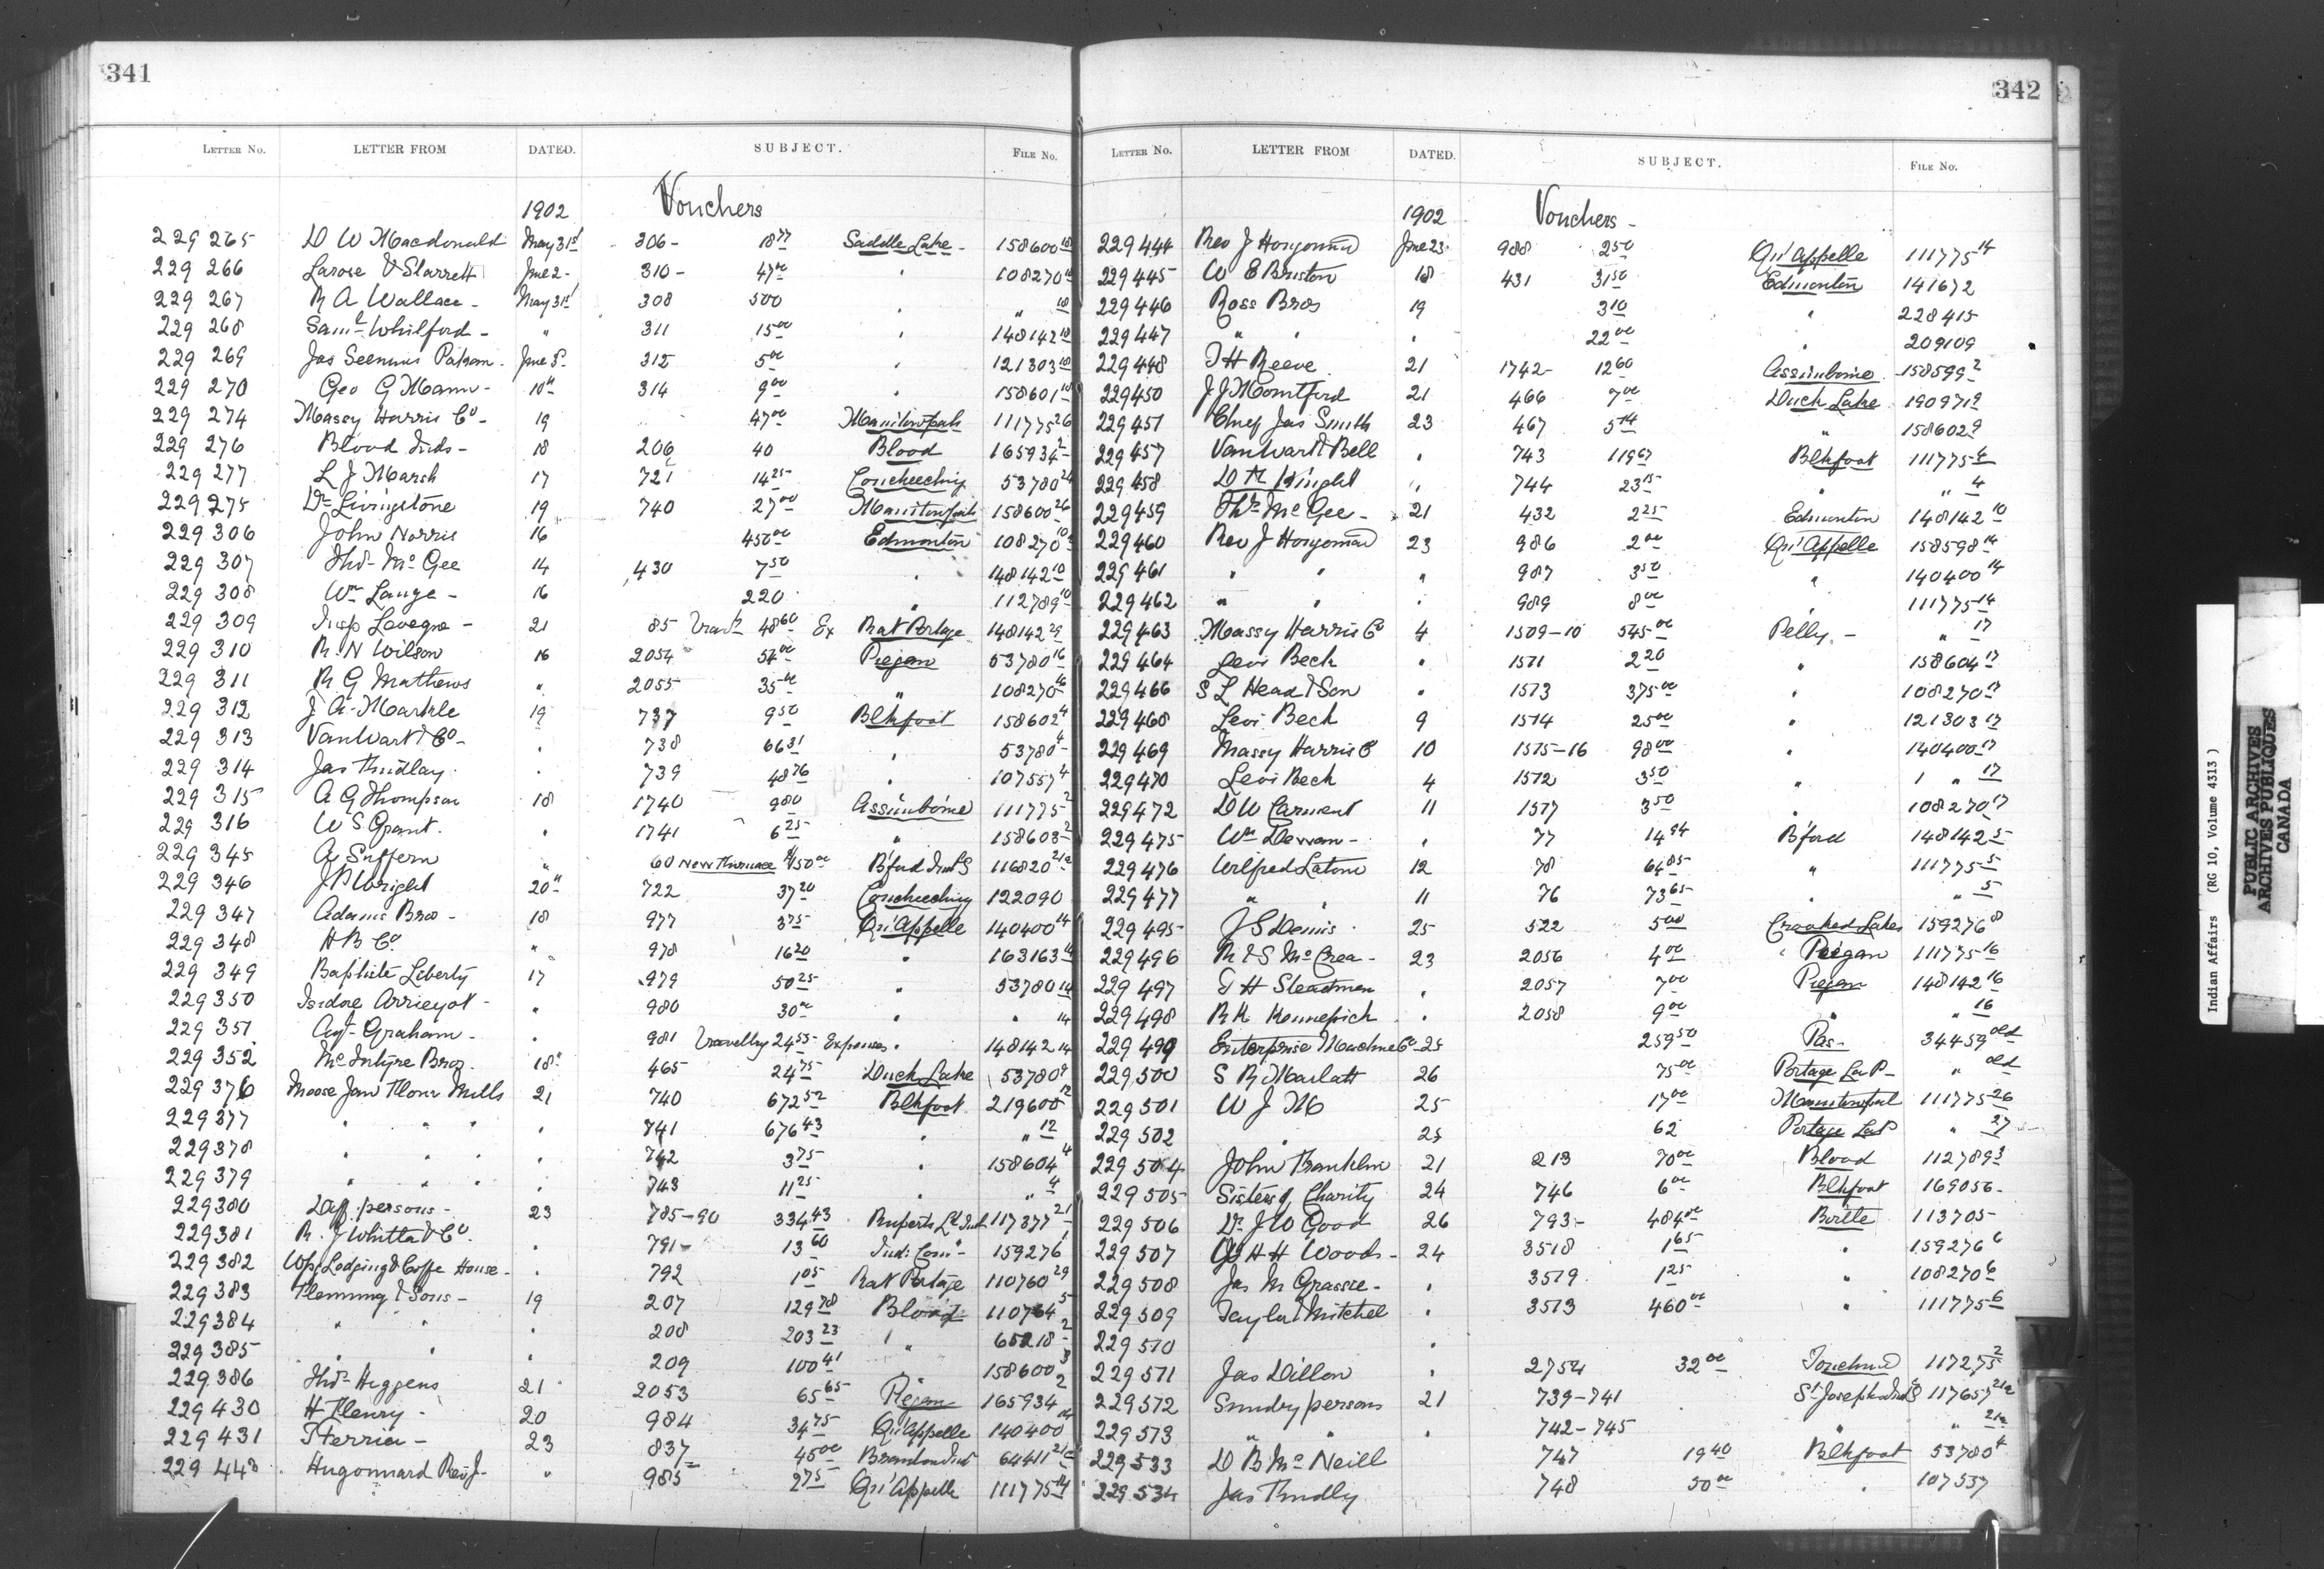 341
LETTER NO. LETTER FROM DATED. SUBJECT. FILE NO.
1902 Vouchers
229 265 D W Macdonald May 31st 306- 18 77 Saddle Lake - 158600 18
229 266 Larose & Starrett June 2 - 310- 47 00 " 108270 18
229 267 R A Wallace - May 31st 308 500 " " 18
229 268 Saml Whitford - " 311 15 00 " 148142 18
229 269 Jas Seenum Pakan - June 5 312 5 00 " 121303 18
229 270 Geo G Mann - 10th 314 9 00 " 158601 18
229 274 Massy Harris Co - 19 47 00 Manitowpah 111775 26
229 276 Blood Inds - 18 206 40 Blood 165934 2
229 277 L J Marsh 17 721 14 25 Coucheeching 53780 24
229 275 Dr Livingstone 19 740 27 00 Manitowpah 158600 26
229 306 John Norris 16 450 00 Edmonton 108270 10
229 307 Thos Mc Gee 14 430 7 50 " 148142 10
229 308 Wm Lange - 16 220 " 112789 10
229 309 Insp Levegne - 21 85 Travlg 48 60 Ex Rat Portage 148142 29
229 310 R. N Wilson 16 2054 54 00 Piegan 53780 16
229 311 R G Mathews " 2055 35 00 " 108270 16
229 312 J A Markle 19 737 9 50 Blkfoot 158602 4
229 313 VanWart & Co - " 738 66 31 " 53780 4
229 314 Jas Findlay " 739 48 76 " 107557 4
229 315 A G Thompson 18 1740 9 80 Assiniboine 111775 2
229 316 W S Grant. " 1741 6 25 " 158603 2
229 345 A Suffern " 60 New Furnace $150 00 B'ford Ind S 116820 21a
229 346 J P Wright 20th 722 37 20 Coucheeching 122090
229 347 Adams Bros - 18 977 3 75 Qu'Appelle 140400 14
229 348 H B Co " 978 16 20 " 163163 14
229 349 Baptiste Leberty 17 979 50 25 " 53780 14
229 350 Isidore Arrieyot - " 980 30 00 " " 14
229 351 Agt Graham - " 981 Travellng 24 55 Expenses " 148142 14
229 352 McIntyre Bros. 18" 465 24 75 Duck Lake 53780 9
229 376 Moose Jaw Flour Mills 21 740 672 52 Blkfoot 219600 12
229 377 " " " " 741 676 43 " " 12
229 378 " " " " 742 3 75 " 158604 4
229 379 " " " " 743 11 25 " " 4
229 380 Diff. persons - 23 785-90 334 43 Ruperts Ld Ind 117377 21
229 381 R. J Whitta & Co. " 791- 13 60 Ind: Com - 159276 1
229 382 Wpg Lodging & Coffe House - " 792 1 05 Rat Portage 110760 29
229 383 Flemming & Sons - 19 207 129 78 Blood 110764 5
229 384 " " " 208 203 23 " 65218 2
229 385 " " " 209 100 41 " 158600 3
229 386 Thos Higgens 21 2053 65 65 Piegan 165934 2
229 430 H Fleury - 20 984 34 75 Qu'Appelle 140400 14
229 431 F Ferrier - 23 837 45 00 Brandon Ind 64411 21c
229 443 Hugonnard Rev J - " 985 2 75 Qu'Appelle 111775 14
342
LETTER NO. LETTER FROM DATED. SUBJECT. FILE NO.
1902 Vouchers -
229 444 Rev J Hugonnard June 23 988 2 50 Qu'Appelle 111775 14
229 445 W E Briston 18 431 31 50 Edmonton 141672
229 446 Ross Bros 19 3 10 " 228415
229 447 " " " 22 00 " 209109
229 448 T H Reeve 21 1742- 12 60 Assiniboine 158599 2
229 450 J J Mountford 21 466 7 00 Duck Lake 190971 9
229 451 Chief Jas Smith 23 467 5 14 " 158602 9
229 457 VanWart & Bell " 743 119 67 Blkfoot 111775 4
229 458 D M Knight " 744 23 15 " " 4
229 459 Thos McGee - 21 432 2 25 Edmonton 148142 10
229 460 Rev J Hugonnard 23 986 2 00 Qu'Appelle 158598 14
229 461 " " " 987 3 50 " 140400 14
229 462 " " " 989 8 00 " 111775 14
229 463 Massy Harris Co 4 1509-10 545 00 Pelly - " 17
229 464 Levi Beck " 1511 2 20 " 158604 17
229 466 S L Head & Son " 1513 375 00 " 108270 17
229 468 Levi Beck 9 1514 25 00 " 121303 17
229 469 Massey Harris Co 10 1515-16 98 00 " 140400 17
229 470 Levi Beck 4 1512 3 50 " " 17
229 472 D W Carment 11 1517 3 50 " 108270 17
229 475 Wm Dewan - " 77 14 94 B'ford 148142 5
229 476 Wilfred Latour 12 78 64 85 " 111775 5
229 477 " " 11 76 73 65 " " 5
229 495 J S Dennis 25 522 5 00 Crooked Lakes 159276 8
229 496 R & S McCrea - 23 2056 4 00 Peigan 111775 16
229 497 T H Steadman " 2057 7 00 Piegan 148142 16
229 498 R H Kennefick " 2058 9 00 " " 16
229 499 Enterprise Machine Co - 25 259 50 Pas - 34459 old
229 500 S R Marlatt 26 75 00 Portage La P - " old
229 501 W J M 25 17 00 Manitowpah 111775 26
229 502 " 25 62 Portage La P " 27
229 504 John Franklin 21 213 70 00 Blood 112789 3
229 505 Sisters of Charity 24 746 6 00 Blkfoot 169056 -
229 506 Dr J W Good 26 793- 484 00 Birtle 113705
229 507 W H H Woods - 24 3518 1 65 " 159276 6
229 508 Jas M Grassie - " 3519 1 25 " 108270 6
229 509 Taylor & Mitchel " 3513 460 00 " 111775 6
229 510 "
229 511 Jas Dillon " 2754 32 00 Touchwd 117275 2
229 512 Sundry persons 21 739-741 St Josephs Ind S 117657 21a
229 513 " " " 742-745 " " 21a
229 533 D B McNeill 747 19 40 Blkfoot 53780 4
229 534 Jas Findly 748 50 00 " 107537
Indian Affairs (RG 10, Volume 4313)
PUBLIC ARCHIVES
ARCHIVES PUBLIQUES
CANADA